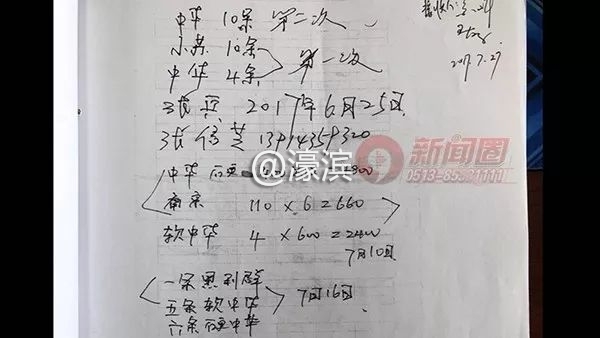 中华 10条 第二次
小苏 10条
中华 4条 第一次
张兵 2017年6月25日
2017.7.27
@濠滨
新闻圈
0513-85321111
中华 硬
南京 110×6=660
软中华 4×600=2400
7月10日
一条黑利群
五条软中华 7月16日
六条硬中华